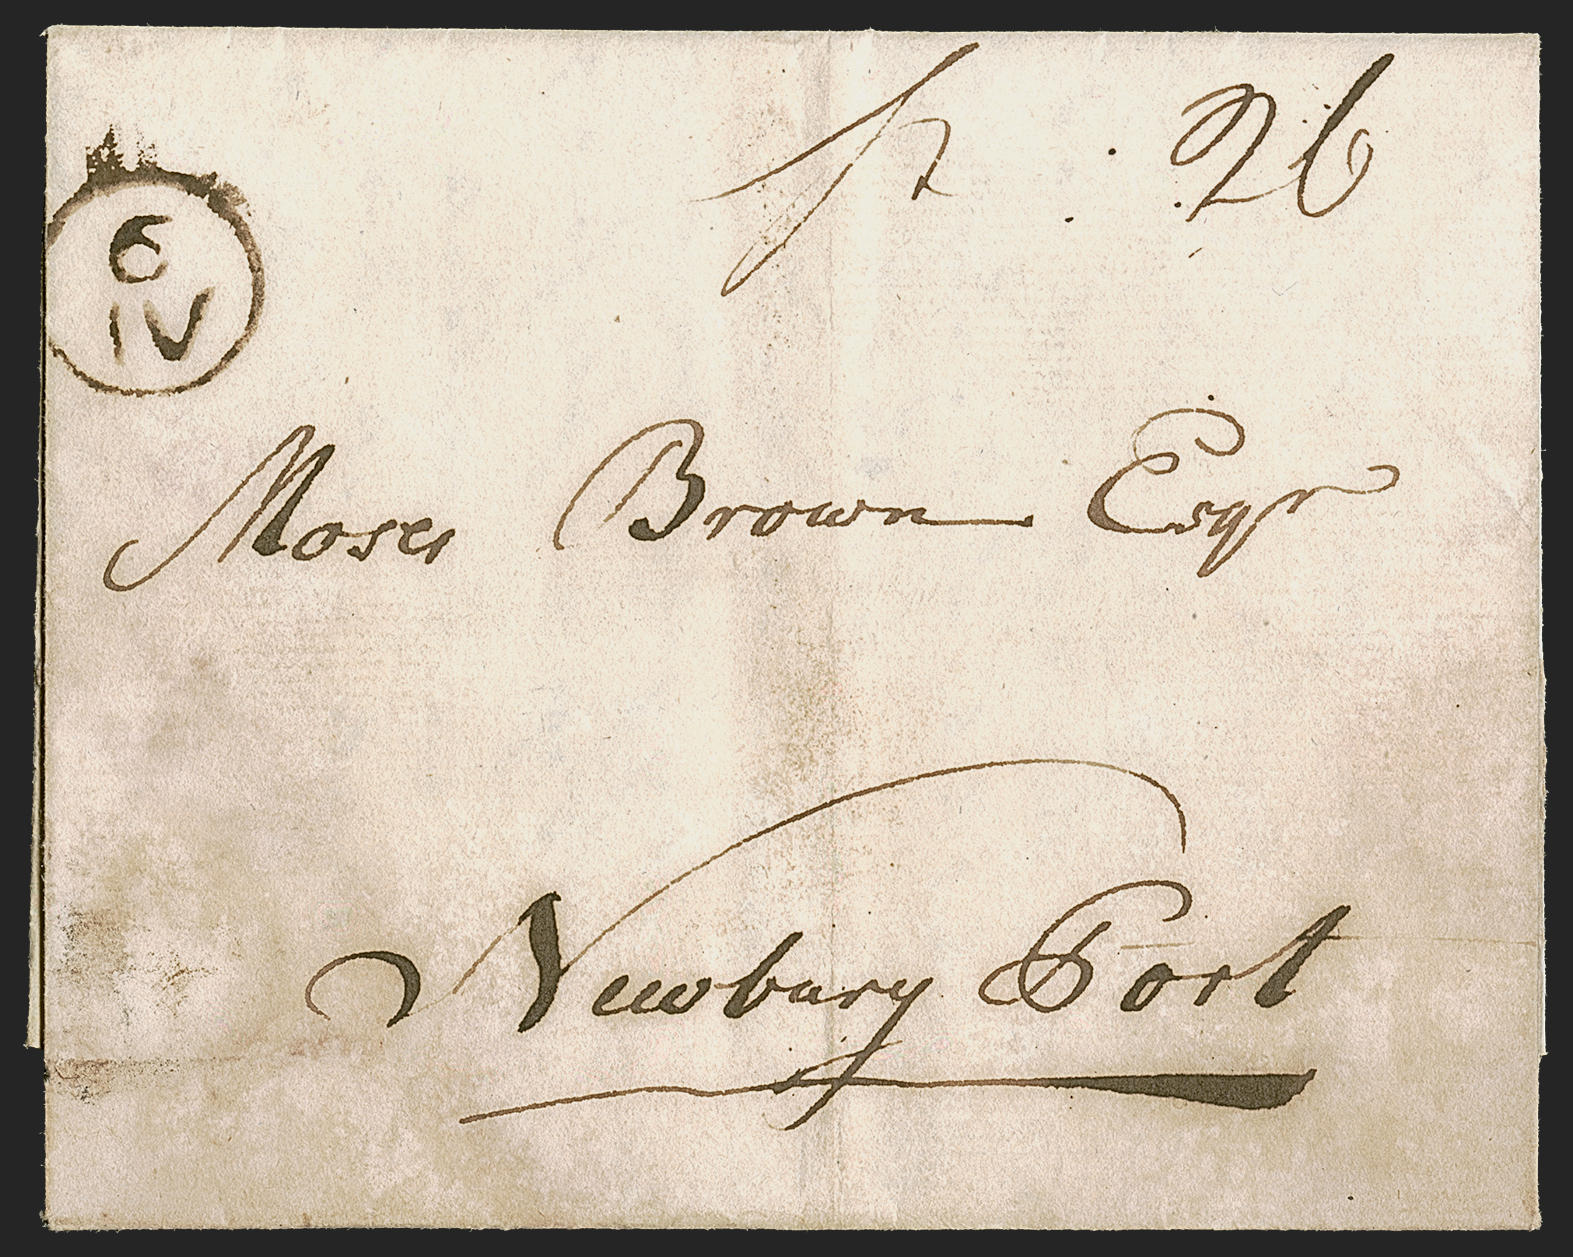 26
6
IV
Moses Brown Esqr
Newbury Port